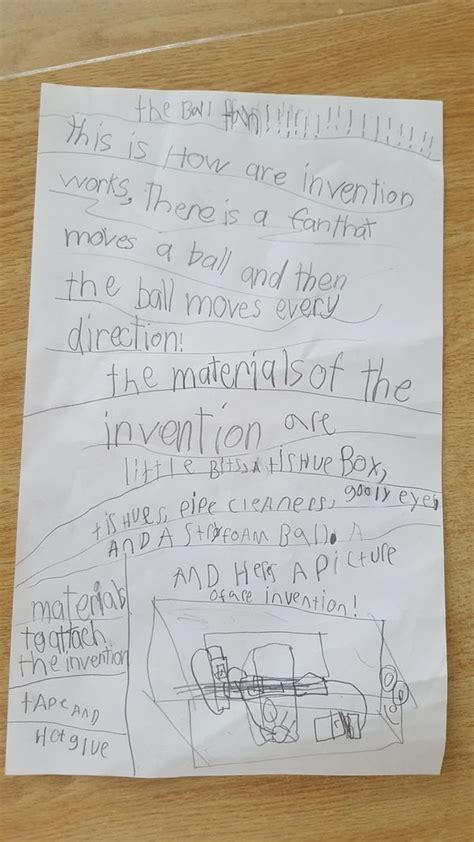 the Ball fan!!!!!!!!!!!!!!!!
this is How are invention
works, There is a fan that
moves a ball and then
the ball moves every
direction!
the materials of the
invention are
little Bits, A tishue Box,
tishues, pipe cleaners, gooly eyes
AND A StyfoAm Ball. A
AND Hers A Picture
of are invention!
materials
to attach
the invention
tApe AND
Hot glue